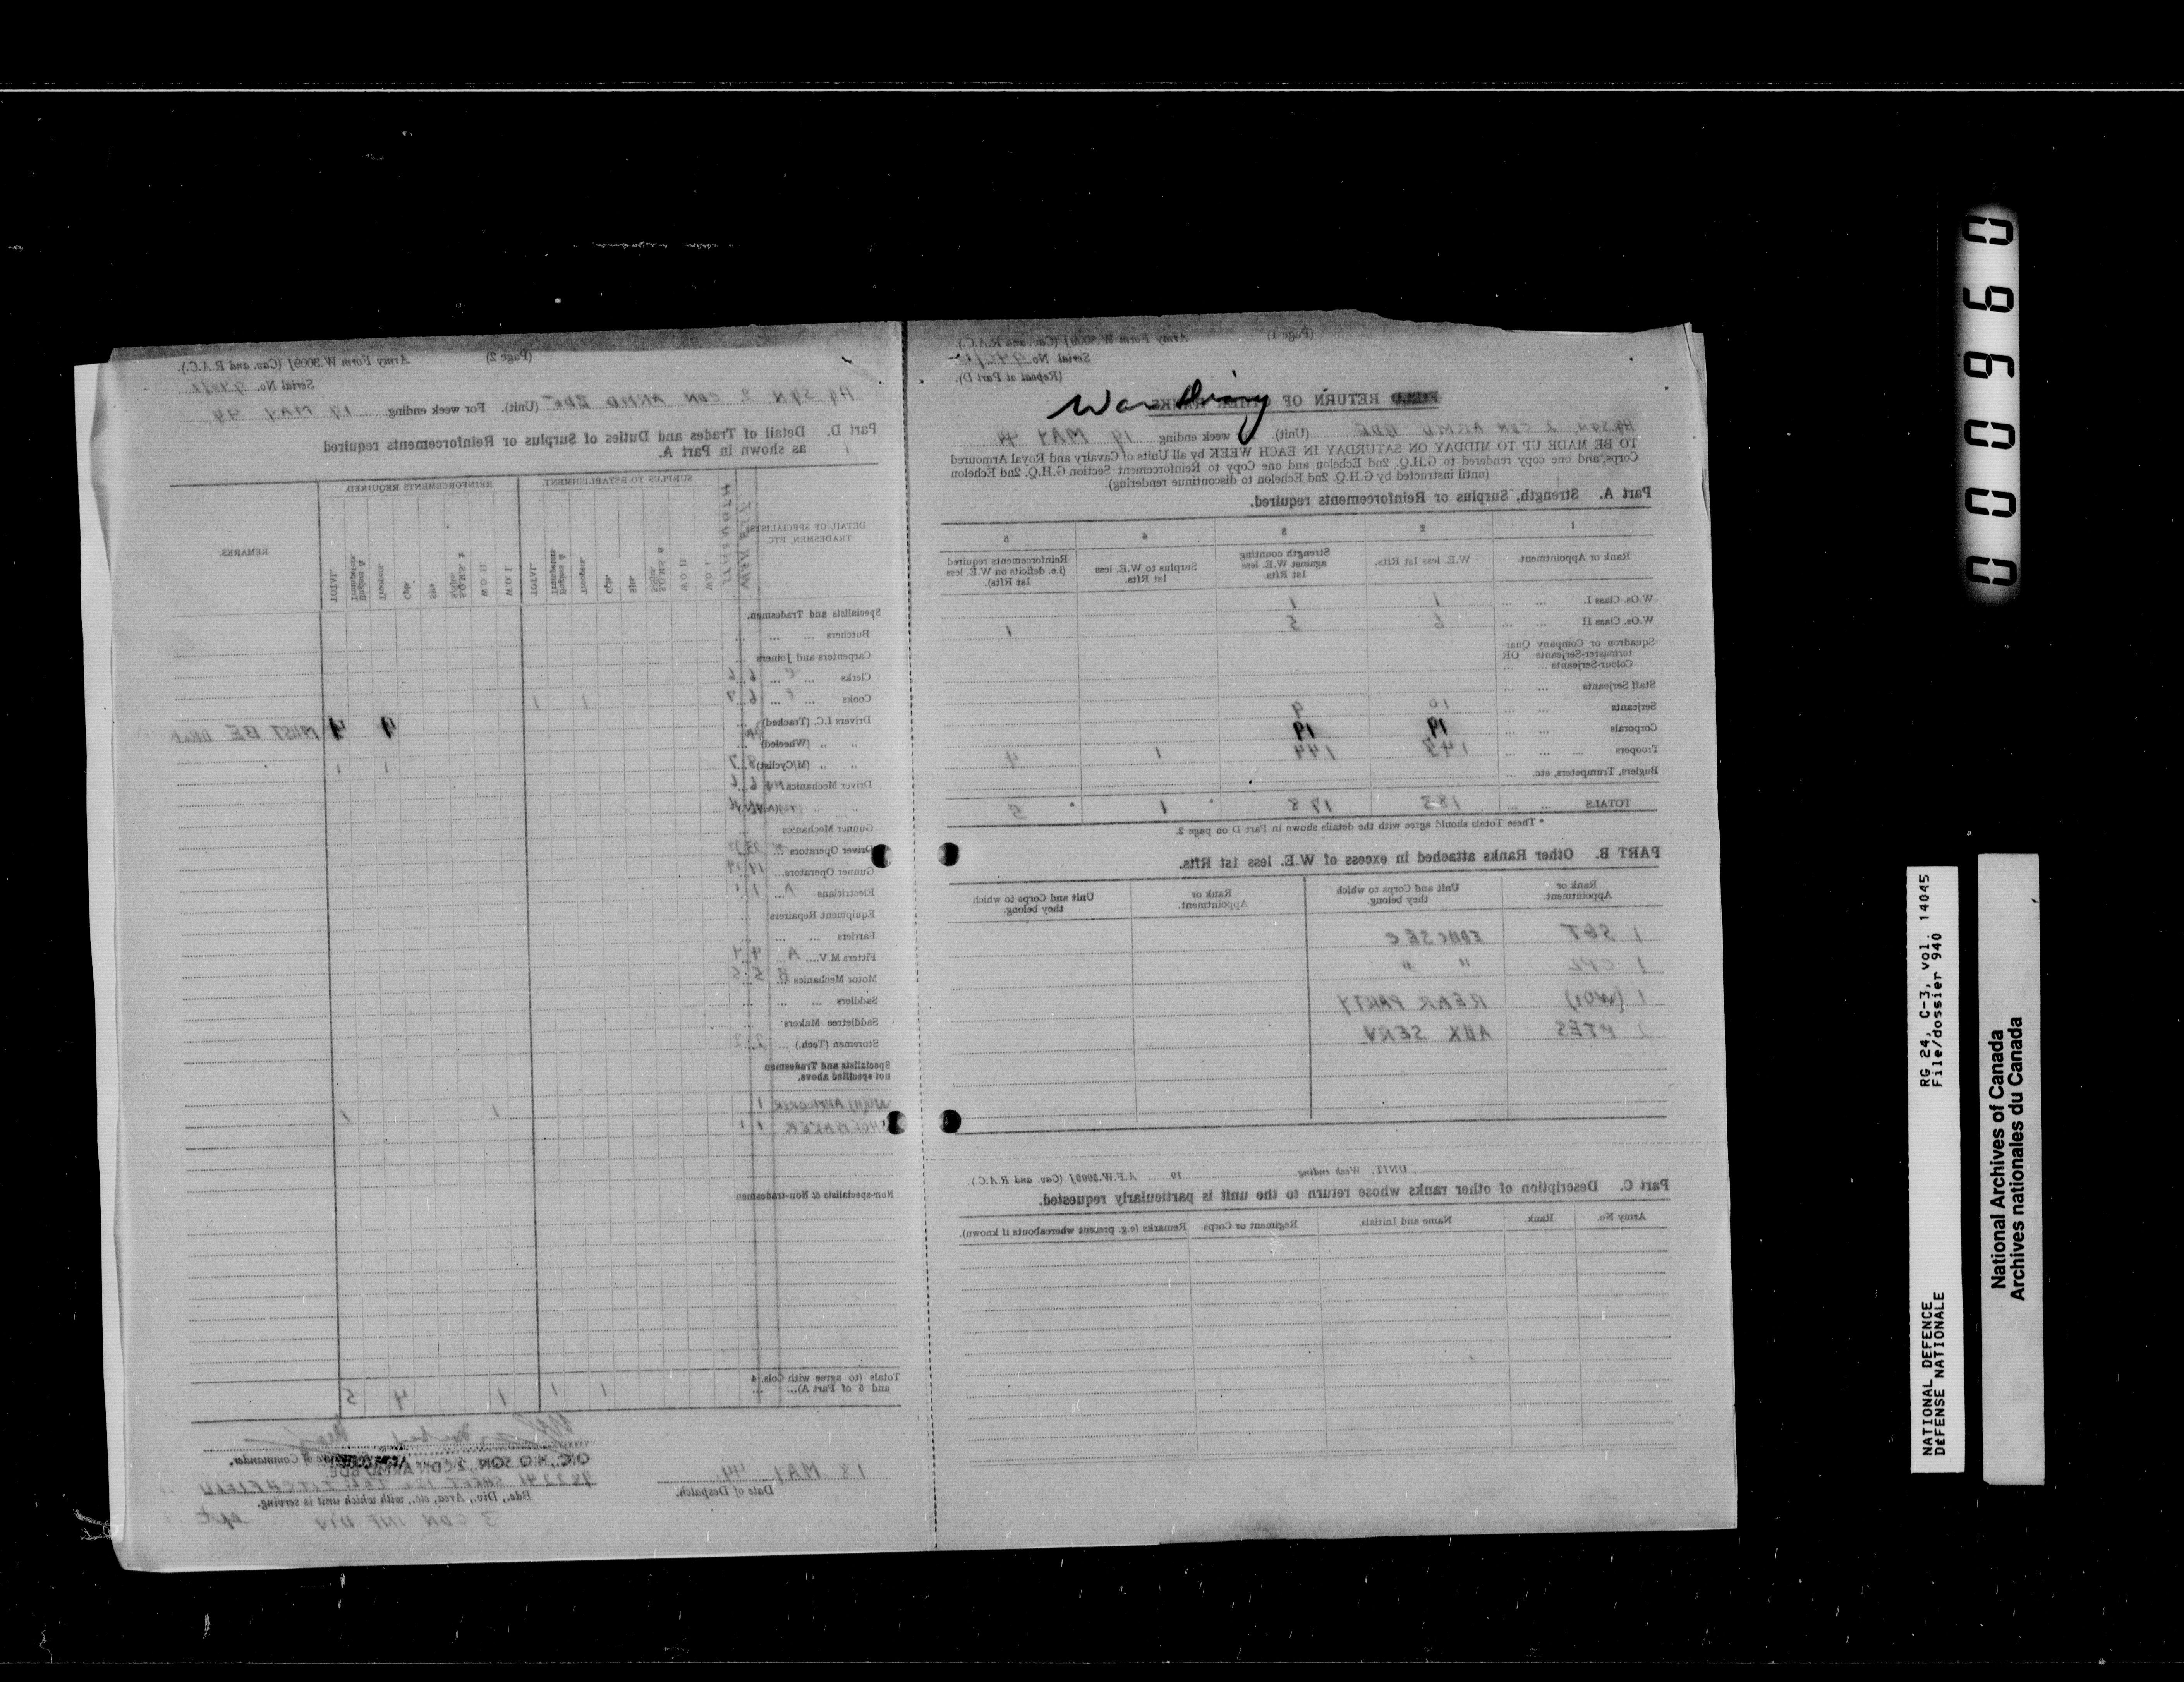 War Diary
(Page 1)
Army Form W.3009J (Cav. and R.A.C.).
Serial No.
(Repeat at Part D).
RETURN OF OTHER RANKS
HQ SQN, 2 CDN ARMD BDE (Unit). week ending 19 MAY 44
TO BE MADE UP TO MIDDAY ON SATURDAY IN EACH WEEK by all Units of Cavalry and Royal Armoured
Corps, and one copy rendered to G.H.Q. 2nd Echelon and one Copy to Reinforcement Section G.H.Q. 2nd Echelon
(until instructed by G.H.Q. 2nd Echelon to discontinue rendering).
Part A. Strength, Surplus or Reinforcements required.
1 2 3 4 5
Rank or Appointment
W.E. less 1st Rfts.
Strength counting against W.E. less 1st Rfts.
Surplus to W.E. less 1st Rfts.
Reinforcements required (i.e. deficits on W.E. less 1st Rfts).
W.Os. Class I. ... ... 1 1
W.Os. Class II ... ... 6 5 1
Squadron or Company Quar-
termaster-Serjeants OR
Colour-Serjeants ... ...
Staff Serjeants ... ...
Serjeants ... ... 10 9
Corporals ... ... 19 19
Troopers ... ... ... 147 144 1 4
Buglers, Trumpeters, etc. ...
TOTALS ... ... 183 178 1 5
* These Totals should agree with the details shown in Part D on page 2.
PART B. Other Ranks attached in excess of W.E. less 1st Rfts.
Rank or Appointment.
Unit and Corps to which they belong.
Rank or Appointment.
Unit and Corps to which they belong.
1 SGT
1 CPL " "
1 REAR PARTY
PTES AUX SERV
UNIT. Week ending 19 A.F.W.3009J (Cav. and R.A.C.).
Part C. Description of other ranks whose return to the unit is particularly requested.
Army No. Rank. Name and Initials. Regiment or Corps. Remarks (e.g. present whereabouts if known).
(Page 2)
Army Form W.3009J (Cav. and R.A.C.).
Serial No.
HQ SQN 2 CDN ARMD BDE (Unit). For week ending 19 MAY 44
Part D. Detail of Trades and Duties of Surplus or Reinforcements required
as shown in Part A.
DETAIL OF SPECIALISTS, TRADESMEN, ETC.
STRENGTH
SURPLUS TO ESTABLISHMENT.
REINFORCEMENTS REQUIRED.
REMARKS.
W.O. I.
W.O. II
Sjts.
Cpls.
Troopers
Buglers & Trumpeters
TOTAL
W.O. I.
W.O. II
Sjts.
Cpls.
Troopers
Buglers & Trumpeters
TOTAL
Specialists and Tradesmen.
Butchers ... ...
Carpenters and Joiners
Clerks ... ... 6 6
Cooks ... ... 6 7 1 1
Drivers I.C. (Tracked) ... 4 4 MUST BE
" " (Wheeled)
" " (M/Cyclist) 8 7 1 1
Driver Mechanics 6 6
Gunner Mechanics
Driver Operators ... 23
Gunner Operators... 14 14
Electricians A 1 1
Equipment Repairers
Farriers ... ...
Fitters M.V.... A 4 4
Motor Mechanics B 5 5
Saddlers ... ...
Saddletree Makers
Storemen (Tech.) ... 2 2
Specialists and Tradesmen
not specified above.
ARMOURER 1 1 1
SHOEMAKER 1 1
Non-specialists & Non-tradesmen
Totals (to agree with Cols. 4
and 5 of Part A)... ... 1 1 1 4 5
18 MAY 44
Date of Despatch.
Signature of Commander.
O.C. HQ SQN, 2 CDN ARMD BDE
Bde., Div., Area, etc., with which unit is serving.
3 CDN INF DIV
0000960
RG 24, C-3, vol. 14045
File/dossier 940
NATIONAL DEFENCE
DÉFENSE NATIONALE
National Archives of Canada
Archives nationales du Canada